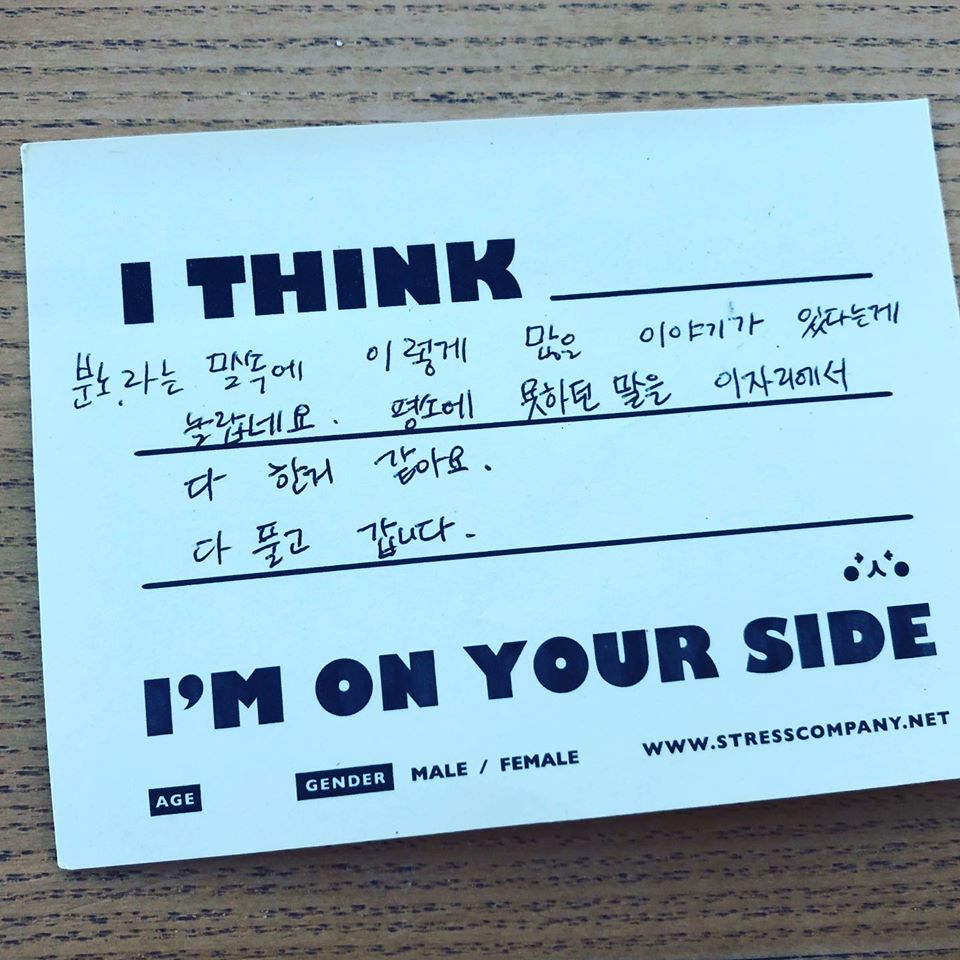 I THINK
분노라는 말속에 이렇게 많은 이야기가 있다는게
놀랍네요. 평소에 못하던 말을 이자리에서
다 한거 같아요.
다 풀고 갑니다.
I'M ON YOUR SIDE
AGE GENDER MALE / FEMALE WWW.STRESSCOMPANY.NET